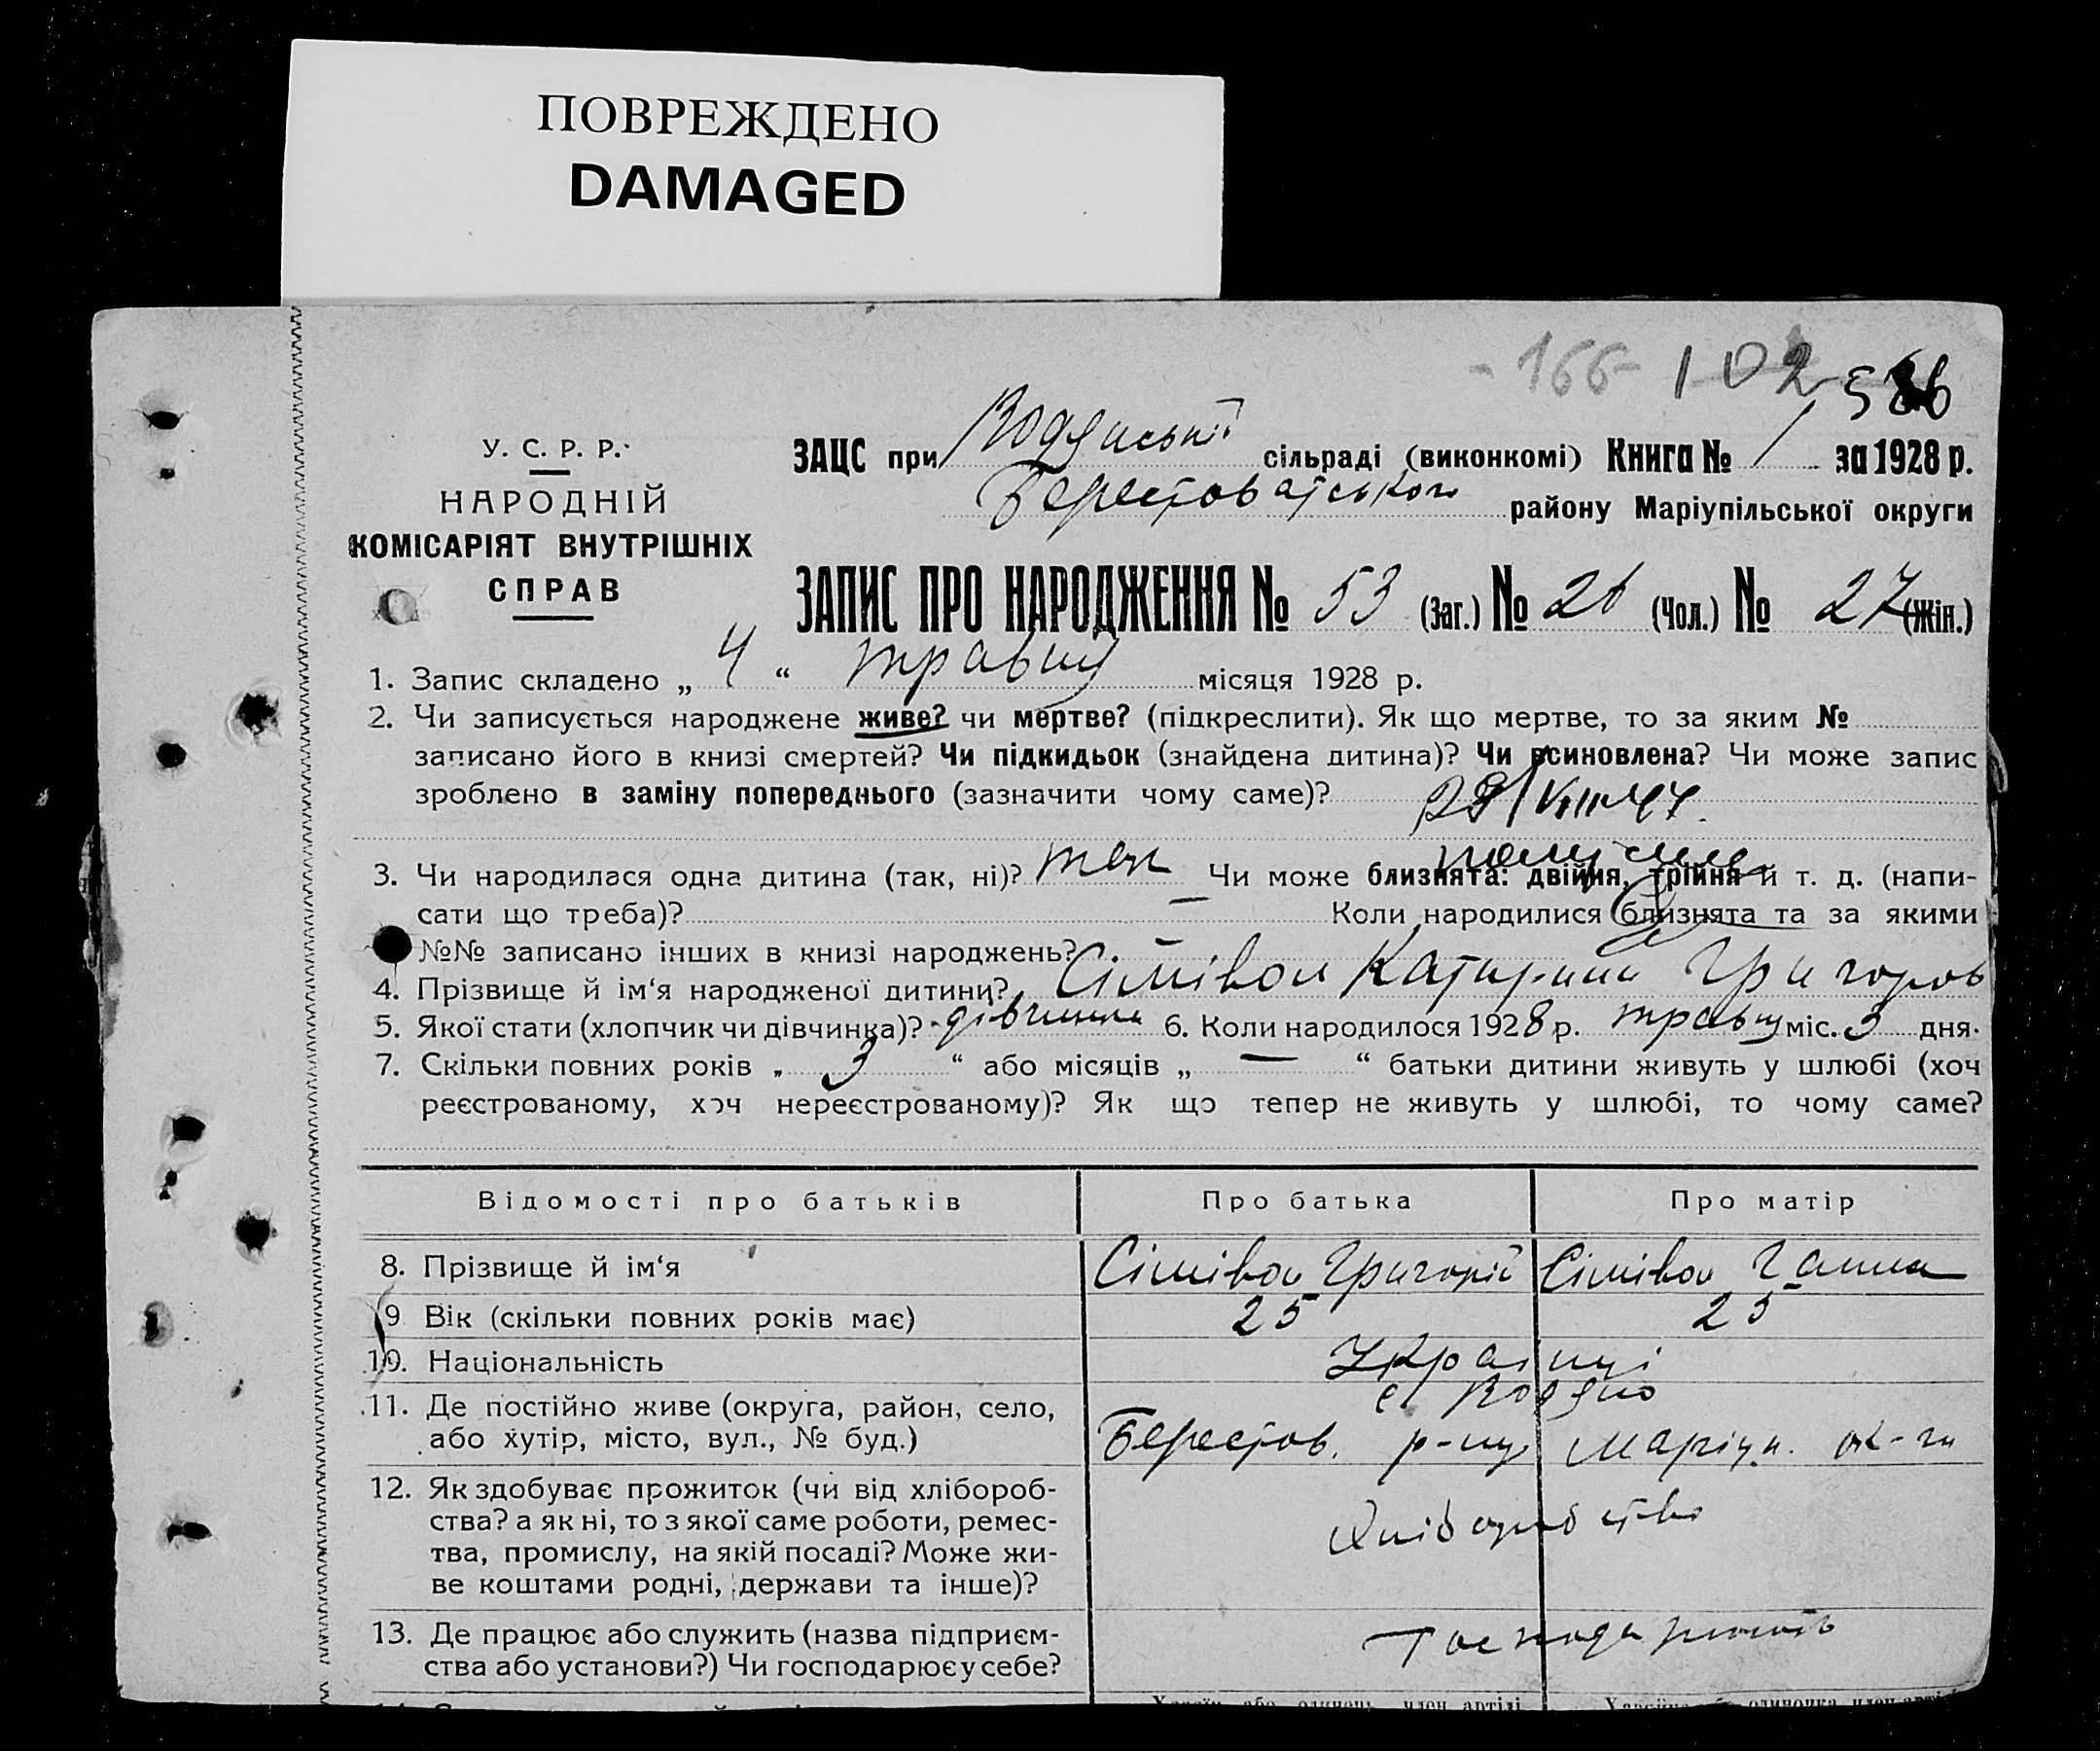 ПОВРЕЖДЕНО
DAMAGED
-166- 102
У. С. Р. Р.
НАРОДНІЙ
КОМІСАРІЯТ ВНУТРІШНІХ
СПРАВ
ЗАЦС при Водянській сільраді (виконкомі) Книга № 1 за 1928 р.
Берестоватського району Маріупільської округи
ЗАПИС ПРО НАРОДЖЕННЯ № 53 (Заг.) № 26 (Чол.) № 27 (Жін.)
1. Запис складено „ 4 “ травня місяця 1928 р.
2. Чи записується народжене живе? чи мертве? (підкреслити). Як що мертве, то за яким №
записано його в книзі смертей? Чи підкидьок (знайдена дитина)? Чи всиновлена? Чи може запис
зроблено в заміну попереднього (зазначити чому саме)?
3. Чи народилася одна дитина (так, ні)? так Чи може близнята: двійня, трійня й т. д. (напи-
сати що треба)? — Коли народилися близнята та за якими
№№ записано інших в книзі народжень? —
4. Прізвище й ім‘я народженої дитини? Катерина Григоров
5. Якої стати (хлопчик чи дівчинка)? дівчинка 6. Коли народилося 1928 р. травня міс. 3 дня.
7. Скільки повних років „ 3 “ або місяців „ — “ батьки дитини живуть у шлюбі (хоч
реєстрованому, хоч нереєстрованому)? Як що тепер не живуть у шлюбі, то чому саме?
Відомості про батьків Про батька Про матір
8. Прізвище й ім‘я Григорій Ганна
9 Вік (скільки повних років має) 25 25
10. Національність Українці
11. Де постійно живе (округа, район, село, с Водяно
або хутір, місто, вул., № буд.) Берестов. р-ну Маріуп. ок-ги
12. Як здобуває прожиток (чи від хлібороб-
ства? а як ні, то з якої саме роботи, ремес- Хліборобство
тва, промислу, на якій посаді? Може жи-
ве коштами родні, держави та інше)?
13. Де працює або служить (назва підприєм-
ства або установи?) Чи господарює у себе?